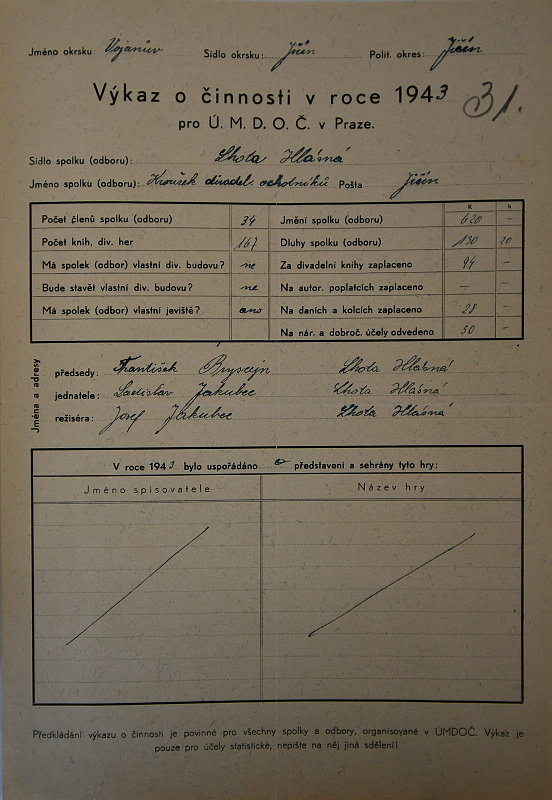 Jméno okrsku: Vojanův Sídlo okrsku: Jičín Polit. okres: Jičín
Výkaz o činnosti v roce 1943
31.
pro Ú. M. D. O. Č. v Praze.
Sídlo spolku (odboru): Lhota Hlásná
Jméno spolku (odboru): Kroužek divadel. ochotníků Pošta Jičín
K h
Počet členů spolku (odboru) 34 Jmění spolku (odboru) 620 -
Počet knih, div. her 167 Dluhy spolku (odboru) 130 20
Má spolek (odbor) vlastní div. budovu? ne Za divadelní knihy zaplaceno 94 -
Bude stavět vlastní div. budovu? ne Na autor. poplatcích zaplaceno -
Má spolek (odbor) vlastní jeviště? ano Na daních a kolcích zaplaceno 28 -
Na nár. a dobroč. účely odvedeno 50 -
Jména a adresy
předsedy: František Lhota Hlásná
jednatele: Ladislav Jakubec Lhota Hlásná
režiséra: Josef Jakubec Lhota Hlásná
V roce 1943 bylo uspořádáno 0 představení a sehrány tyto hry:
Jméno spisovatele Název hry
Předkládání výkazu o činnosti je povinné pro všechny spolky a odbory, organisované v ÚMDOČ. Výkaz je
pouze pro účely statistické, nepište na něj jiná sdělení!